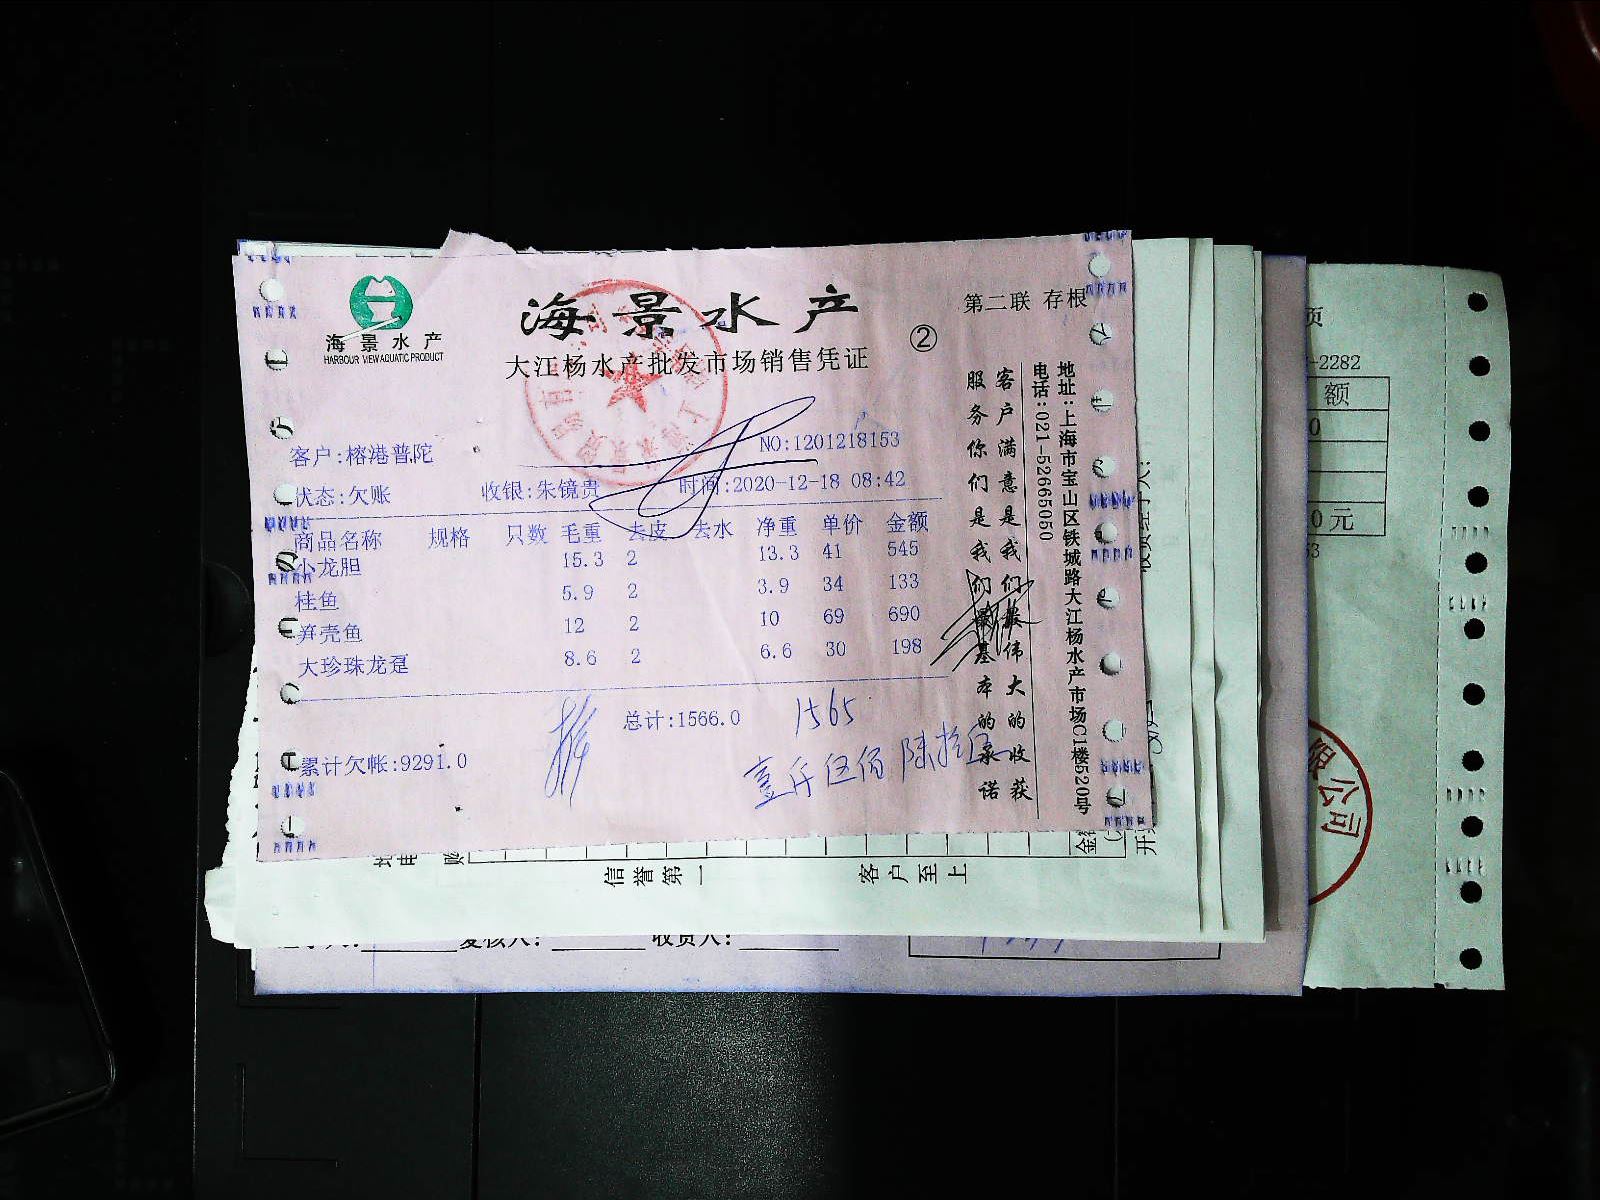 海景水产
HARBOUR VIEW AQUATIC PRODUCT
海景水产
大江杨水产批发市场销售凭证
②
第二联 存根
客户:榕港普陀
NO:1201218153
状态:欠账 收银:朱镜贵 时间:2020-12-18 08:42
商品名称 规格 只数 毛重 去皮 去水 净重 单价 金额
小龙胆 15.3 2 13.3 41 545
桂鱼 5.9 2 3.9 34 133
笋壳鱼 12 2 10 69 690
大珍珠龙趸 8.6 2 6.6 30 198
总计:1566.0
1565
累计欠帐:9291.0
壹仟伍佰陆拾伍
客户满意是我们最伟大的收获
服务你们是我们最基本的承诺
地址:上海市宝山区铁城路大江杨水产市场C1楼520号
电话:021-52665050
信誉第一
客户至上
复核人:
收货人:
页
-2282
额
0
0元
公司